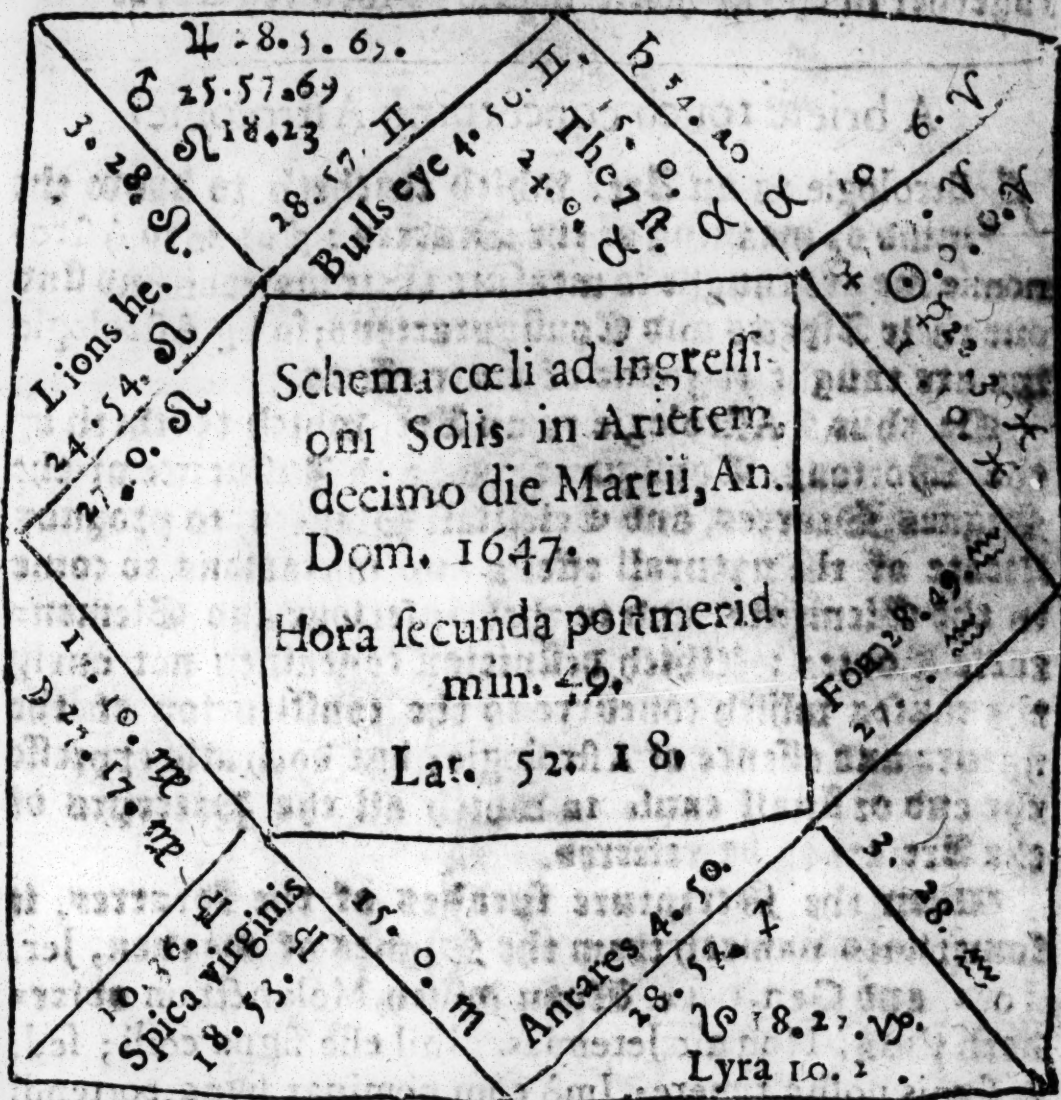 ♃ 8. 5. 6
♂ 25.57.69
☊ 18.23
3. 28. ♌.
28. 57. ♊
Bulls eye 4. 50. ♊.
The 7 ſt.
24. 0. ♉
15. 0. ♉
♄ 54. 40 ♉
0 6. ♈
♀ ☉. 0. 0. ♈
☿ 22
Lions he.
24. 54. ♌
27. 0. ♌
Schema cœli ad ingreſſi-
oni Solis in Arietem,
decimo die Martii, An.
Dom. 1647.
Hora ſecunda poſtmerid.
min. 49.
Lat. 52. 18.
28. 49. ♒
27. ♒
1. 10. ♍
☽ 27. 17. ♍
10. 36. ♎
Spica virginis
18. 53. ♎
15. 0. ♏
Antares 4. 50.
28. 57. ♐
3. 28. ♒
☋ 18. 23. ♑.
Lyra 10. 2